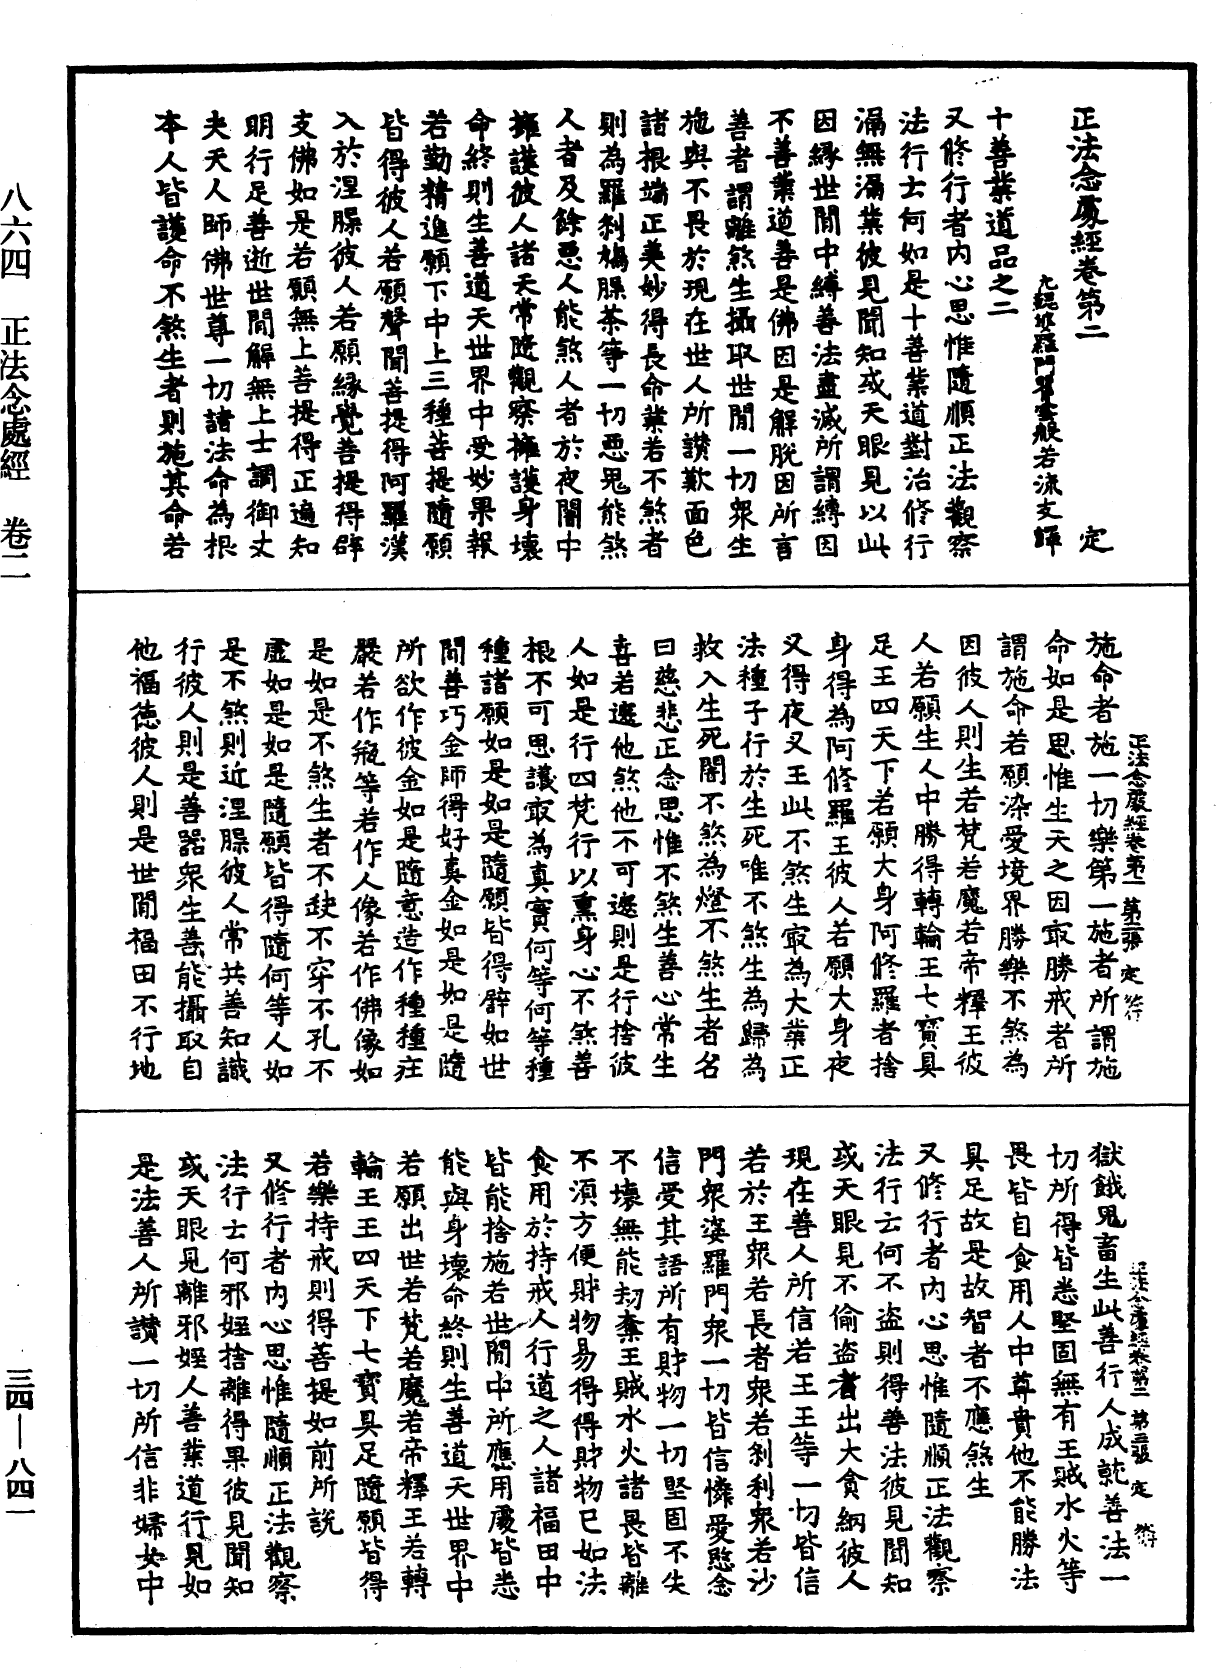 正法念處經卷第二 定
元魏婆羅門瞿曇般若流支譯
十善業道品之二
又修行者內心思惟隨順正法觀察
法行士何如是十善業道對治修行
漏無漏業彼見聞知或天眼見以此
因縁世閒中縛善法盡滅所謂縛因
不善業道善是佛因是解脫因所言
善者謂離煞生攝取世閒一切衆生
施與不畏於現在世人所讃歎面色
諸根端正美妙得長命業若不煞者
則為羅刹鳩䐗茶等一切惡鬼能煞
人者及餘惡人能煞人者於夜闇中
擁護彼人諸天常隨觀察擁護身壞
命終則生善道天世界中受妙果報
若勤精進願下中上三種菩提隨願
皆得彼人若願聲聞菩提得阿羅漢
入於涅䐗彼人若願縁覺菩提得辟
支佛如是若願無上菩提得正遍知
明行足善逝世閒解無上士調御丈
夫天人師佛世尊一切諸法命為根
本人皆護命不煞生者則施其命若
施命者施一切樂第一施者所謂施
命如是思惟生天之因㝡勝戒者所
謂施命若願染愛境界勝樂不煞為
因彼人則生若梵若魔若帝釋王彼
人若願生人中勝得轉輪王七寳具
足王四天下若願大身阿修羅者捨
身得為阿修羅王彼人若願大身夜
叉得夜叉王此不煞生㝡為大業正
法種子行於生死唯不煞生為歸為
救入生死闇不煞為燈不煞生者名
曰慈悲正念思惟不煞生善心常生
喜若邊他煞他不可邊則是行捨彼
人如是行四梵行以熏身心不煞善
根不可思議㝡為真實何等何等種
種諸願如是如是隨願皆得辟如世
閒善巧金師得好真金如是如是隨
所欲作彼金如是隨意造作種種莊
嚴若作瓶等若作人像若作佛像如
是如是不煞生者不缺不穿不孔不
虛如是如是隨願皆得隨何等人如
是不煞則近涅䐗彼人常共善知識
行彼人則是善器衆生善能攝取自
他福德彼人則是世閒福田不行地
正法念處經卷第二 第二張 定
獄餓鬼畜生此善行人成就善法一
切所得皆悉堅固無有王賊水火等
畏皆自食用人中尊貴他不能勝法
具足故是故智者不應煞生
又修行者內心思惟隨順正法觀察
法行士何不盜則得善法彼見聞知
或天眼見不偷盜者出大貪網彼人
現在善人所信若王王等一切皆信
若於王衆若長者衆若刹利衆若沙
門衆婆羅門衆一切皆信憐愛愍念
信受其語所有財物一切堅固不失
不壞無能劫棄王賊水火諸畏皆離
不須方便財物易得得財物已如法
食用於持戒人行道之人諸福田中
皆能捨施若世閒中所應用處皆悉
能與身壞命終則生善道天世界中
若願出世若梵若魔若帝釋王若轉
輪王王四天下七寳具足隨願皆得
若樂持戒則得菩提如前所說
又修行者內心思惟隨順正法觀察
法行士何邪婬捨離得果彼見聞知
或天眼見離邪婬人善業道行見如
是法善人所讃一切所信非婦女中
正法念處經卷第二 第三張 定
八六四 正法念處經 卷二
三四—八四一